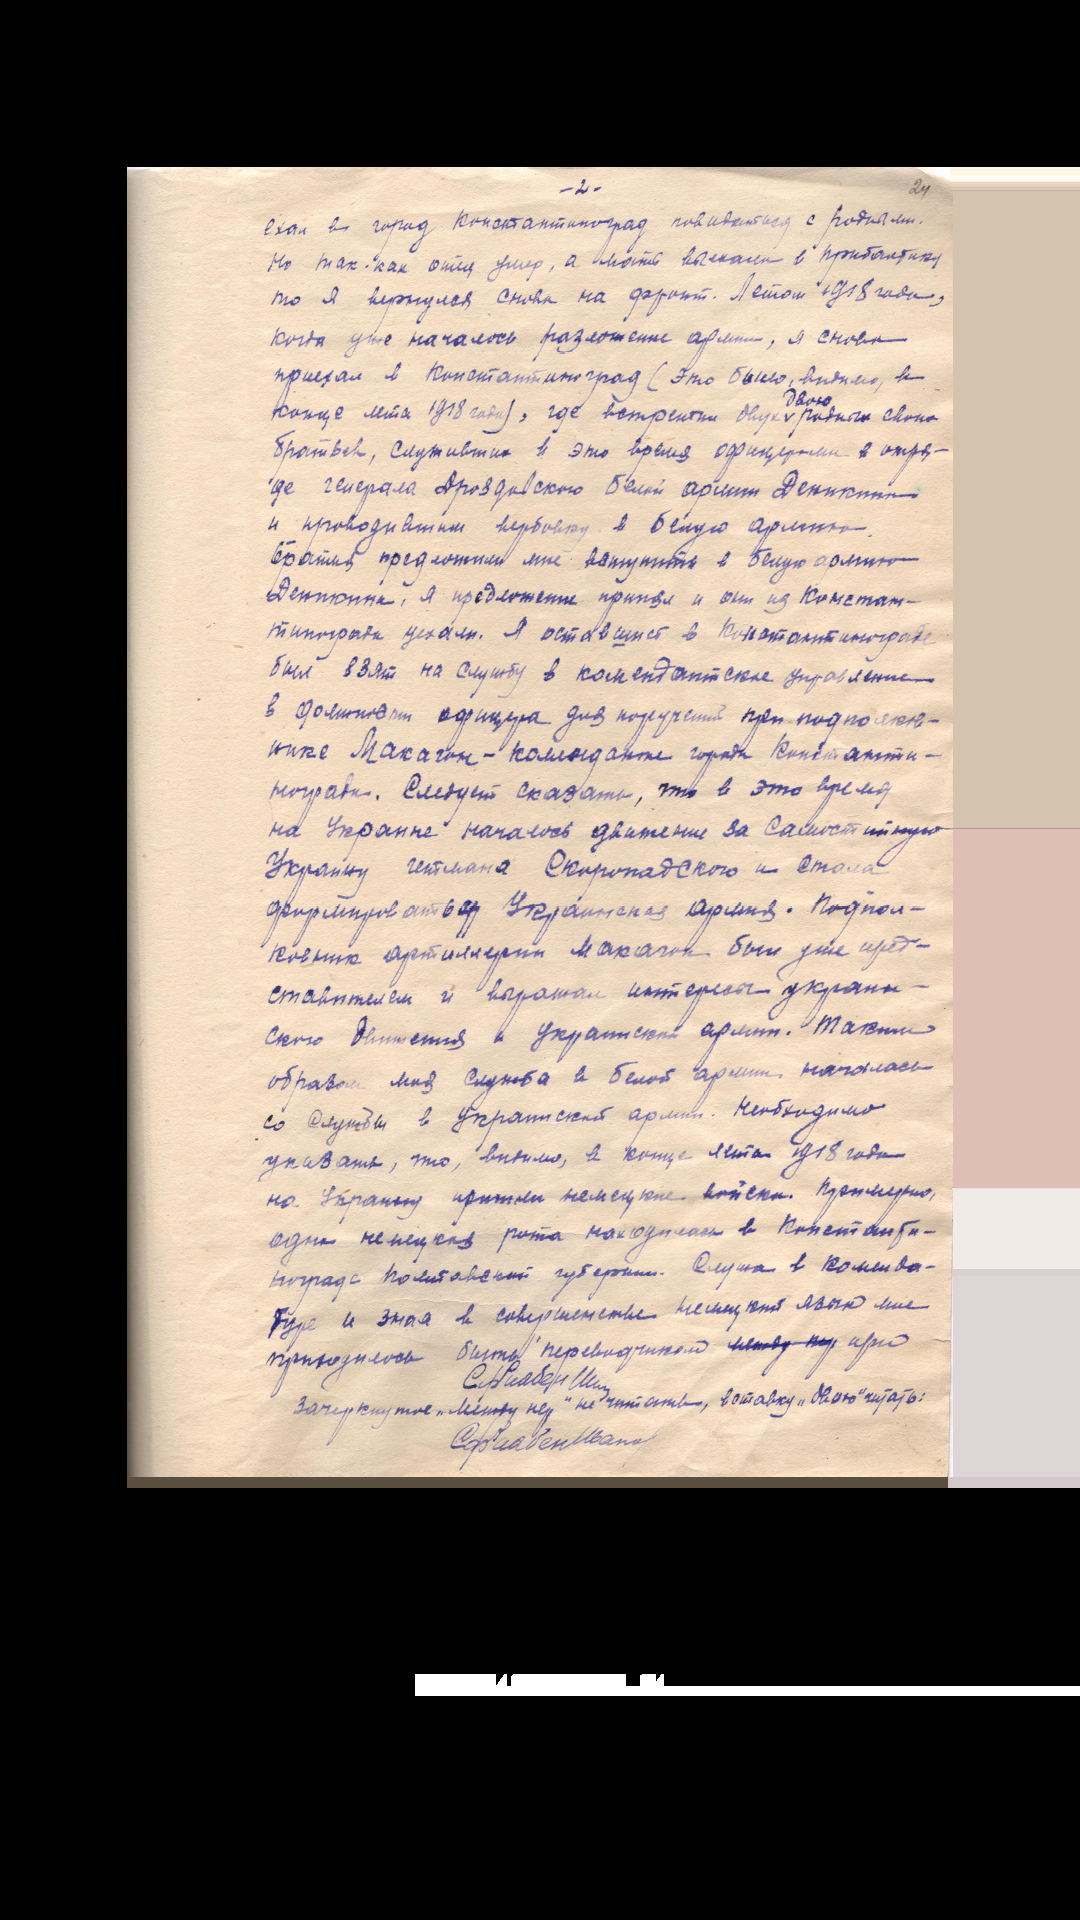 -2-
24
ехал в город Константиноград повидаться с родными.
Но так-как отец умер, а мать выехала в Прибалтику
то я вернулся снова на фронт. Летом 1918 года,
когда уже началось разложение армии, я снова
приехал в Константиноград (это было, видимо, в
конце лета 1918 года), где встретил двух двою родных своих
братьев, служивших в это время офицерами в отря-
де генерала Дроздовского белой армии Деникина
и проводивших вербовку в белую армию.
Братья предложили мне вступить в белую армию
Деникина, я предложение принял и они из Констан-
тинограда уехали. Я оставшист в Константинограде
был взят на службу в комендантское управление
в должности офицера для поручений при подполков-
нике Макагон - коменданте города Константи-
нограда. Следует сказать, что в это время
на Украине началось движение за самостийную
Украину гетмана Скоропадского и стала
формироваться Украинская армия. Подпол-
ковник артиллерии Макагон был уже пред-
ставителем и выражал интересы украин-
ского движения и украинской армии. Таким
образом моя служба в белой армии началась
со службы в украинской армии. Необходимо
указать, что, видимо, в конце лета 1918 года
на Украину пришли немецкие войска. Примерно,
одна немецкая рота находилась в Константи-
нограде Полтавской губернии. Служа в коменда-
туре и зная в совершенстве немецкий язык мне
приходилось быть переводчиком между ну при
Зачеркнутое „между ну" не читать, вставку „двою" читать: